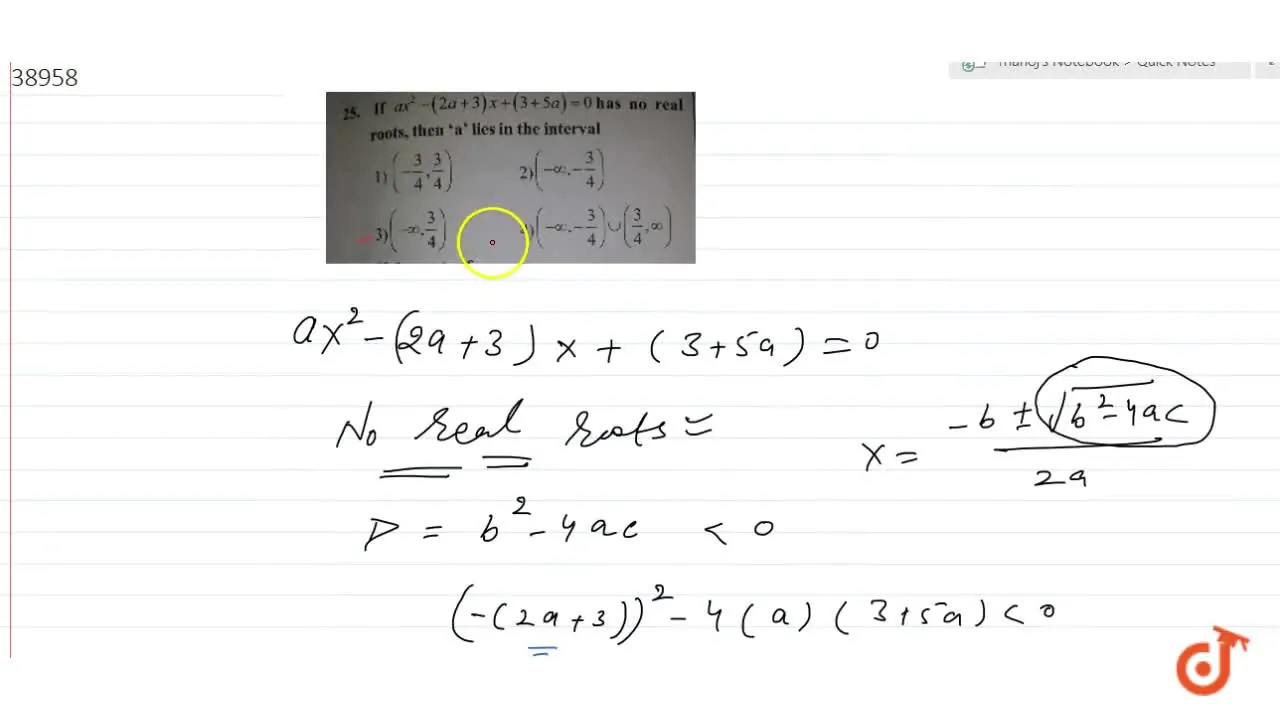 38958
Manoj's Notebook > Quick Notes
25. If ax² −(2a+3)x+(3+5a)=0 has no real
roots, then 'a' lies in the interval
1) (−3/4, 3/4) 2) (−∞, −3/4)
3) (−∞, 3/4) 4) (−∞, −3/4) ∪ (3/4, ∞)
ax² − (2a+3) x + (3+5a) = 0
No real roots =
x = −b ± √b²−4ac / 2a
D = b² − 4ac < 0
(−(2a+3))² − 4(a)(3+5a) < 0